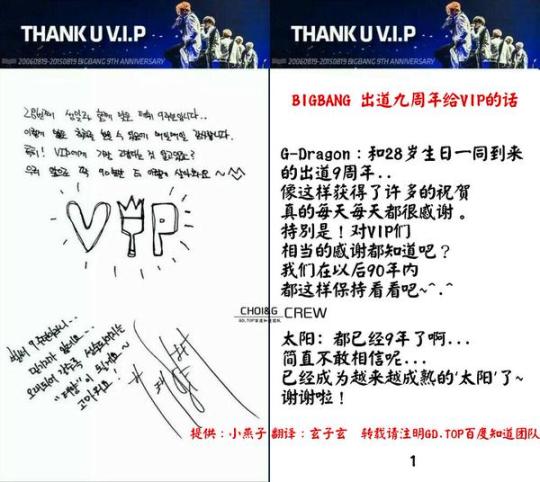 THANK U V.I.P
20060819-20150819 BIGBANG 9TH ANNIVERSARY
28번째 생일과 함께 맞은 데뷔 9주년입니다..
이렇게 많은 축하를 받을 수 있음에 매일매일 감사합니다.
특히! VIP에게 가장 고맙다는 것 알고있죠?
우리 앞으로 딱 90년만 더 이렇게 살아봐요~
VIP
벌써 9주년이라니...
믿기지가 않네요...
성숙해지는
"태양"이 될게요~
고마워요!
THANK U V.I.P
20060819-20150819 BIGBANG 9TH ANNIVERSARY
BIGBANG 出道九周年给VIP的话
G-Dragon：和28岁生日一同到来
的出道9周年..
像这样获得了许多的祝贺
真的每天每天都很感谢。
特别是！对VIP们
相当的感谢都知道吧？
我们在以后90年内
都这样保持看看吧~^.^
CHOI&G CREW
GD.TOP百度知道团队
太阳：都已经9年了啊...
简直不敢相信呢...
已经成为越来越成熟的'太阳'了~
谢谢啦！
提供：小燕子 翻译：玄子玄 转载请注明GD.TOP百度知道团队
1